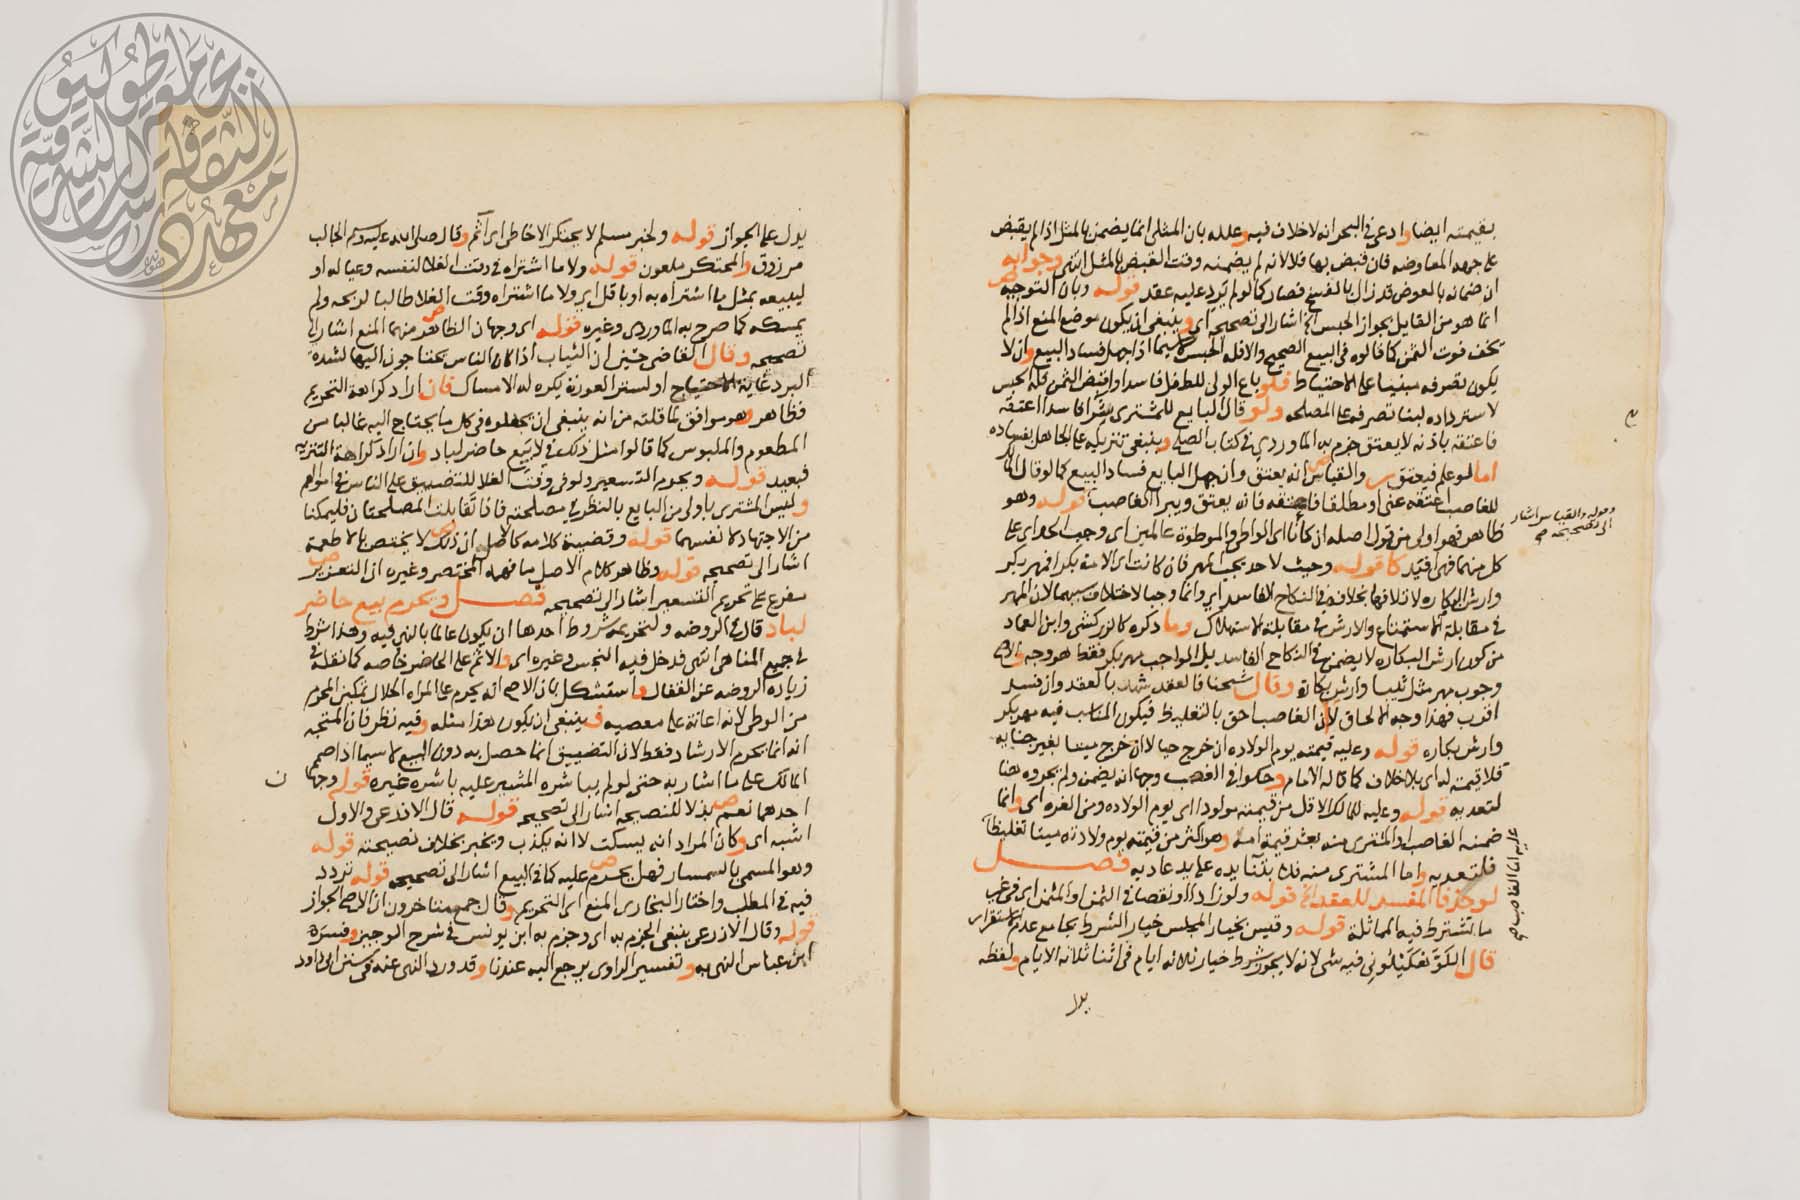 بقيمته ايضا وادعي في البحر انه لا خلاف فيه وعلله بان المثلى انما يضمن بالمثل اذا لم يقبض
على جهة المعاوضه فان قبض بها فلا لانه لم يضمنه وقت القبض بالمثل انتهى وجوابه
ان ضمانه بالعوض قد زال بالفسخ فصار كما لو لم يرد عليه عقد قوله وبان التوجيه
انما هو من القايل بجواز الحبس الخ اشار الى تصحيحه اي وينبغي ان يكون موضع المنع اذا لم
تخف فوت الثمن كما قالوه في البيع الصحيح والا فله الحبس لا سيما اذا جهل فساد البيع وان لا
يكون تصرفه مبنيا على الاحتياط فلو باع الولي للطفل فاسدا واقبض الثمن فله الحبس
لاسترداده لبنا تصرفه على المصلحه ولو قال البايع للمشتري شرا فاسدا اعتقه
فاعتقه باذنه لا يعتق جزم به الماوردي في كتاب الصلح وينبغي تنزيله على الجاهل بفساده
اما لو علم فيعتق والقياس انه يعتق وان جهل البايع فساد البيع كما لو قال المالك
للغاصب اعتقه عني او مطلقا فاعتقه فانه يعتق ويبرا الغاصب قوله وهو
ظاهر فهو اولى من قول اصله ان كانا اي الواطي والموطوة عالمين اي وجب الحد اي على
كل منهما فهي اقيد كا قوله وحيث لا حد يجب المهر فان كانت اي الامة بكرا فمهر بكر
وارش البكاره لاتلافها بخلافه في النكاح الفاسد اي وانما وجبا لاختلاف سببهما لان المهر
في مقابلة الاستمتاع والارش في مقابلة الاستهلاك وما ذكره كالزركشي وابن العماد
من كون ارش البكاره لا يضمن في النكاح الفاسد بل الواجب مهر بكر فقط هو وجه والاصح
وجوب مهر مثل ثيبا وارش بكارة وقال شيخنا فالعقد شبه بالعقد وان فسد
اقرب فهذا وجه الالحاق لان الغاصب احق بالتغليظ فيكون المناسب فيه مهر بكر
وارش بكاره قوله وعليه قيمته يوم الولاده ان خرج حيا لا ان خرج ميتا بغير جنايه
فلا قيمة له اي بلا خلاف كما قاله الامام وحكوا في الغصب وجها انه يضمن ولم يجروه هنا
لتعديه قوله وعليه للمالك الاقل من قيمته مولودا اي يوم الولاده ومن الغره اي وانما
ضمنه الغاصب او المشتري منه بعشر قيمة امه وهو اكثر من قيمته يوم ولادته ميتا تغليظا
فلتعديه واما المشتري منه فلابتنا يده على يد عاديه فصل
لو حذفا المفسد للعقد الخ قوله ولو زادا او نقصا في الثمن او المثمن اي في غير
ما تشترط فيه المماثلة قوله وقيس بخيار المجلس خيار الشرط بجامع عدم الاستقرار
قال الكوهكيلوني فيه شي لانه لا يجوز شرط خيار ثلاثه ايام في اثنا ثلاثه الايام ولفظه
يدل
وقوله والقياس اشار
الى تصحيحه
يدل على الجواز قوله ولخبر مسلم لا يحتكر الا خاطي اي آثم وقال صلى الله عليه وسلم الجالب
مرزوق والمحتكر ملعون قوله ولا ما اشتراه في وقت الغلا لنفسه وعياله او
ليبيعه بمثل ما اشتراه به او باقل اي ولا ما اشتراه وقت الغلا طالبا لربحه ولم
يمسكه كما صرح به الماوردي وغيره قوله اي وجهان الظاهر منهما المنع اشار الى
تصحيحه وقال القاضي حسين ان الثياب اذا كان الناس يحتاجون اليها لشدة
البرد غاية الاحتياج او لستر العورة يكره له الامساك فان اراد كراهة التحريم
فظاهر وهو موافق لما قلته من انه ينبغي ان يجعلوه في كل ما يحتاج اليه غالبا من
المطعوم والملبوس كما قالوا مثل ذلك في لا يبع حاضر لباد وان اراد كراهة التنزيه
فبعيد قوله ويحرم التسعير ولو في وقت الغلا للتضييق على الناس في اموالهم
وليس المشتري باولى من البايع بالنظر في مصلحته فاذا تقابلت المصلحتان فليمكنا
من الاجتهاد لانفسهما قوله وقضية كلامه كالاصل ان ذلك لا يختص بالاطعمة
اشار الى تصحيحه قوله وظاهر كلام الاصل ما فهمه المختصر وغيره ان التعزير
مفرع على تحريم التسعير اشار الى تصحيحه فصل ويحرم بيع حاضر
لباد قال في الروضه ولتحريمه شروط احدها ان يكون عالما بالنهي فيه وهذا شرط
في جميع المناهي انتهى فدخل فيه النجس وغيره اي والاثم على الحاضر خاصه كما نقله في
زياده الروضه عن القفال واستشكل بان الاصح انه يحرم على المراه الحلال تمكين المحرم
من الوطي لانه اعانة على معصيه فينبغي ان يكون هذا مثله وفيه نظر فان المتجه
انه انما يحرم الارشاد فقط لان التضييق انما حصل به دون البيع لا سيما اذا صمم
المالك على ما اشار به حتى لو لم يباشره المشير عليه باشره غيره قوله وجهان
احدهما نعم بذلا للنصيحه اشار الى تصحيحه قوله قال الاذرعي والاول
اشبه اي وكان المراد انه يسكت لا انه يكذب ويخبر بخلاف نصيحته قوله
وهو المسمى بالسمسار فهل يحرم عليه كما في البيع اشار الى تصحيحه قوله تردد
فيه في المطلب واختار البخاري المنع اي التحريم وقال جمع متاخرون ان الاصح الجواز
قوله وقال الاذرعي ينبغي الجزم به اي وجزم به ابن يونس في شرح الوجيز وفسره
ابن عباس النهي به وتفسير الراوي يرجع اليه عندنا وقد ورد النهي عنه في سنن ابي داود